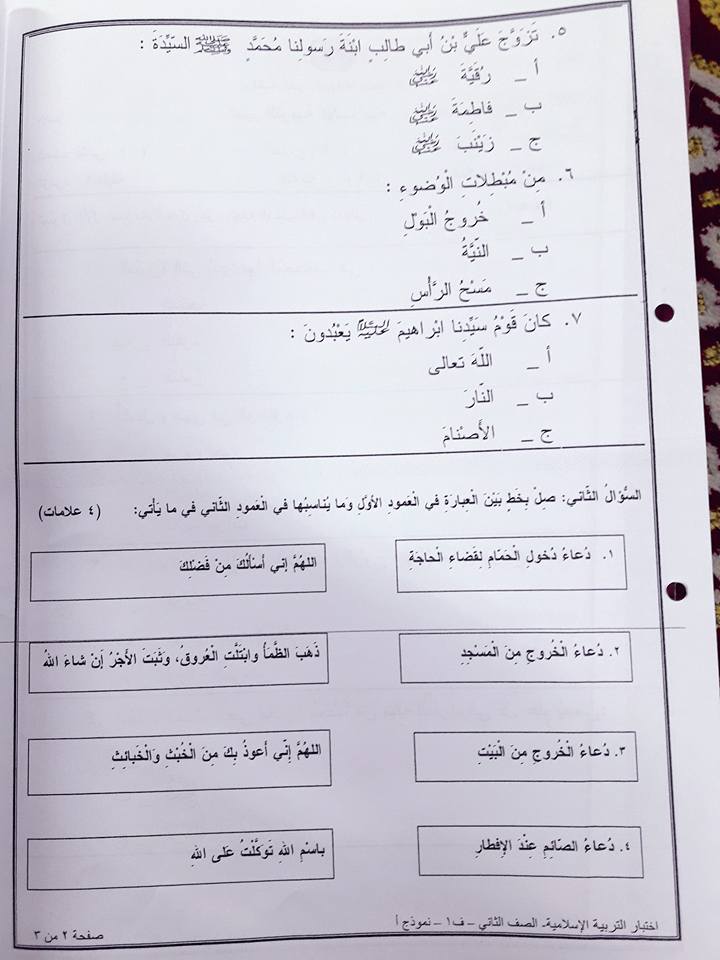 ٥. تَزَوَّجَ عَلَيُّ بْنُ أبي طالِبٍ ابْنَةَ رَسولِنا مُحَمَّدٍ ﷺ السَّيِّدَةَ :
أ _ رُقَيَّةَ
ب _ فاطِمَةَ
ج _ زَيْنَبَ
٦. مِنْ مُبْطِلاتِ الْوُضوءِ :
أ _ خُروجُ الْبَوْلِ
ب _ النِّيَّةُ
ج _ مَسْحُ الرَّأْسِ
٧. كانَ قَوْمُ سَيِّدِنا ابْراهيمَ يَعْبُدونَ :
أ _ اللّهَ تعالى
ب _ النّارَ
ج _ الأَصْنامَ
السُّؤالُ الثّاني: صِلْ بِخَطٍ بَيْنَ الْعِبارَةِ في الْعَمودِ الأوَّلِ وَما يُناسِبُها في الْعَمودِ الثّاني في ما يَأتي: (٤ علامات)
١. دُعاءُ دُخولِ الْحَمّامِ لِقَضاءِ الْحاجَةِ
اللهُمَّ إني أسْألُكَ مِنْ فَضْلِكَ
٢. دُعاءُ الْخُروجِ مِنَ الْمَسْجِدِ
ذَهَبَ الظَّمَأُ وابْتَلَّتِ الْعُروقُ، وَثَبَتَ الأَجْرُ إنْ شاءَ اللهُ
٣. دُعاءُ الْخُروجِ مِنَ الْبَيْتِ
اللهُمَّ إنّي أعوذُ بِكَ مِنَ الْخُبْثِ وَالْخَبائِثِ
٤. دُعاءُ الصّائِمِ عِنْدَ الإفطارِ
باسْمِ اللهِ تَوَكَّلْتُ عَلى اللهِ
اختبار التربية الإسلامية- الصف الثاني – ف١ – نموذج أ
صفحة ٢ من ٣